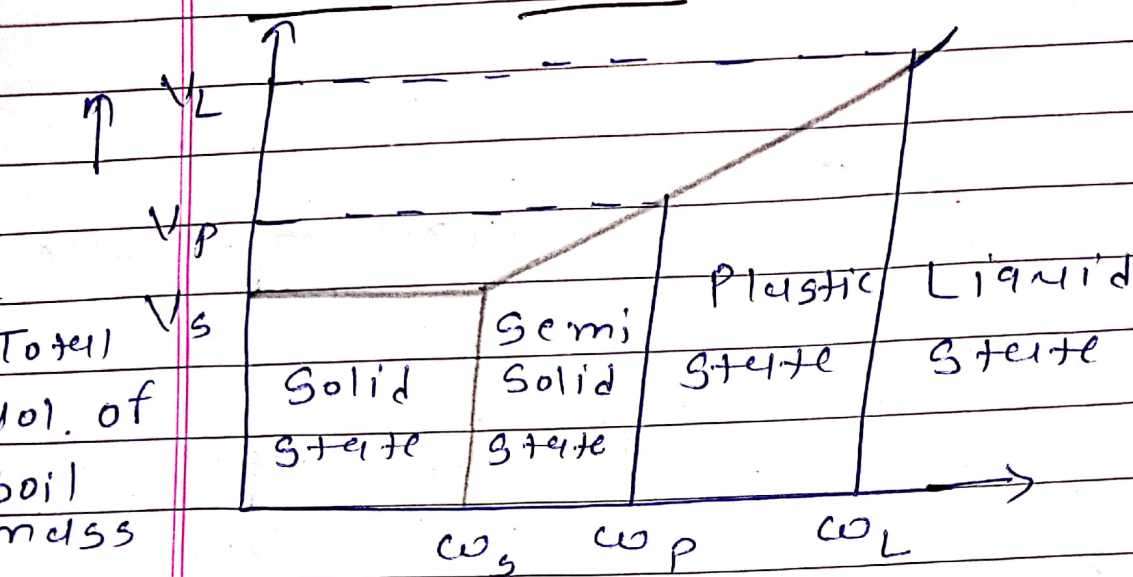 V_L
V_P
V_S
Total
vol. of
soil
mass
Solid
State
Semi
Solid
State
Plastic
State
Liquid
State
ω_s
ω_p
ω_L